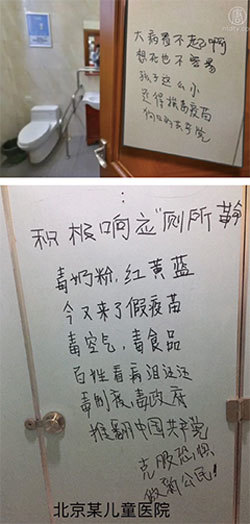 大病看不起啊
想死也不容易
孩子这么小
还得挨毒疫苗
狗日的共产党
积极响应"厕所革
毒奶粉,红黄蓝
今又来了假疫苗
毒空气,毒食品
百姓看病泪汪汪
毒制度,毒政府
推翻中国共产党
克服恐惧
做新公民!
北京某儿童医院